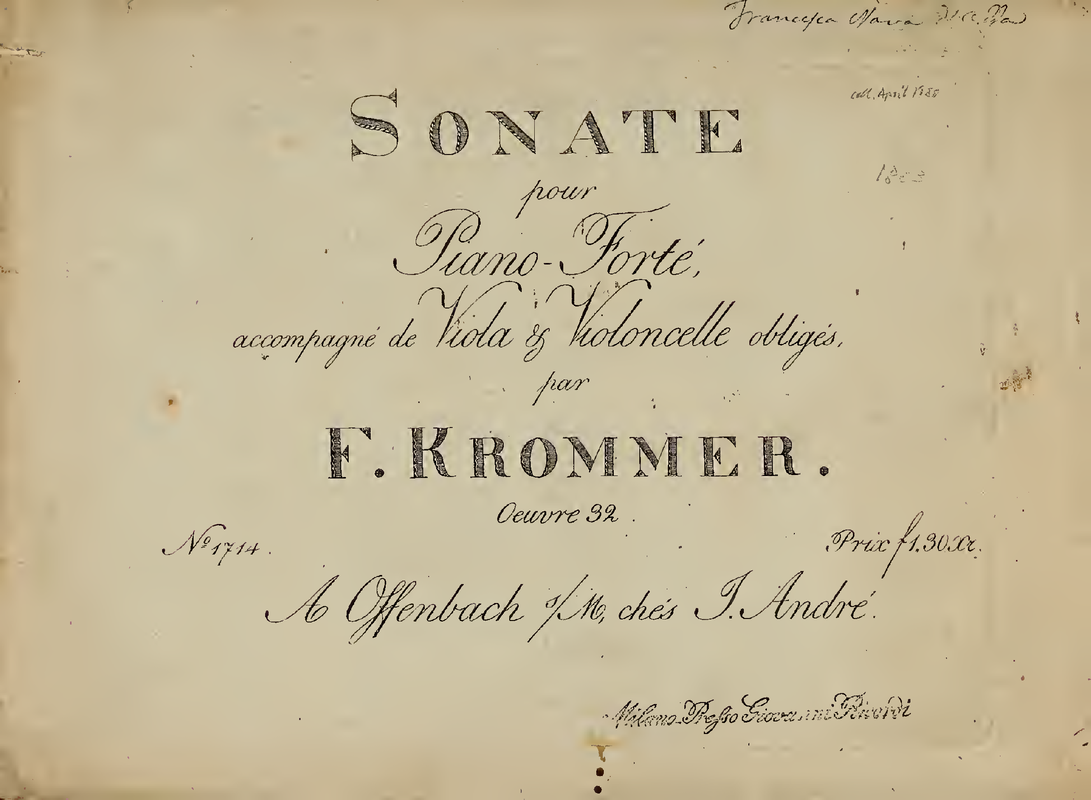 Francesca Nava
coll. April 1920
SONATE
pour
Piano-Forté,
accompagné de Viola & Violoncelle obligés,
par
F. KROMMER.
Oeuvre 32.
Nº 1714.
Prix f 1.30 Xr.
A Offenbach s/M, chés J. André.
Milano Presso Giovanni Ricordi